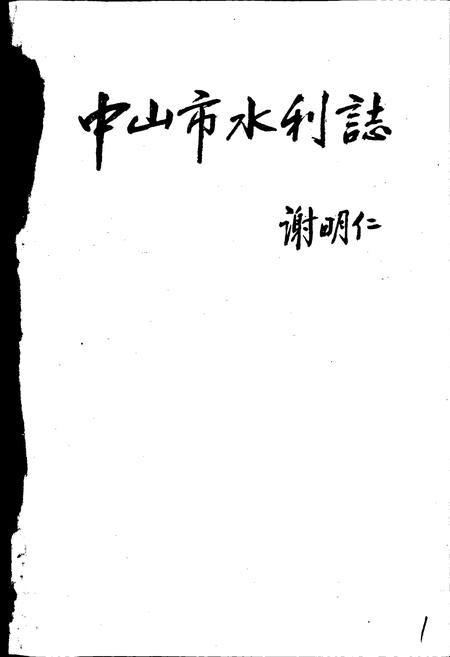 中山市水利誌
谢明仁
1